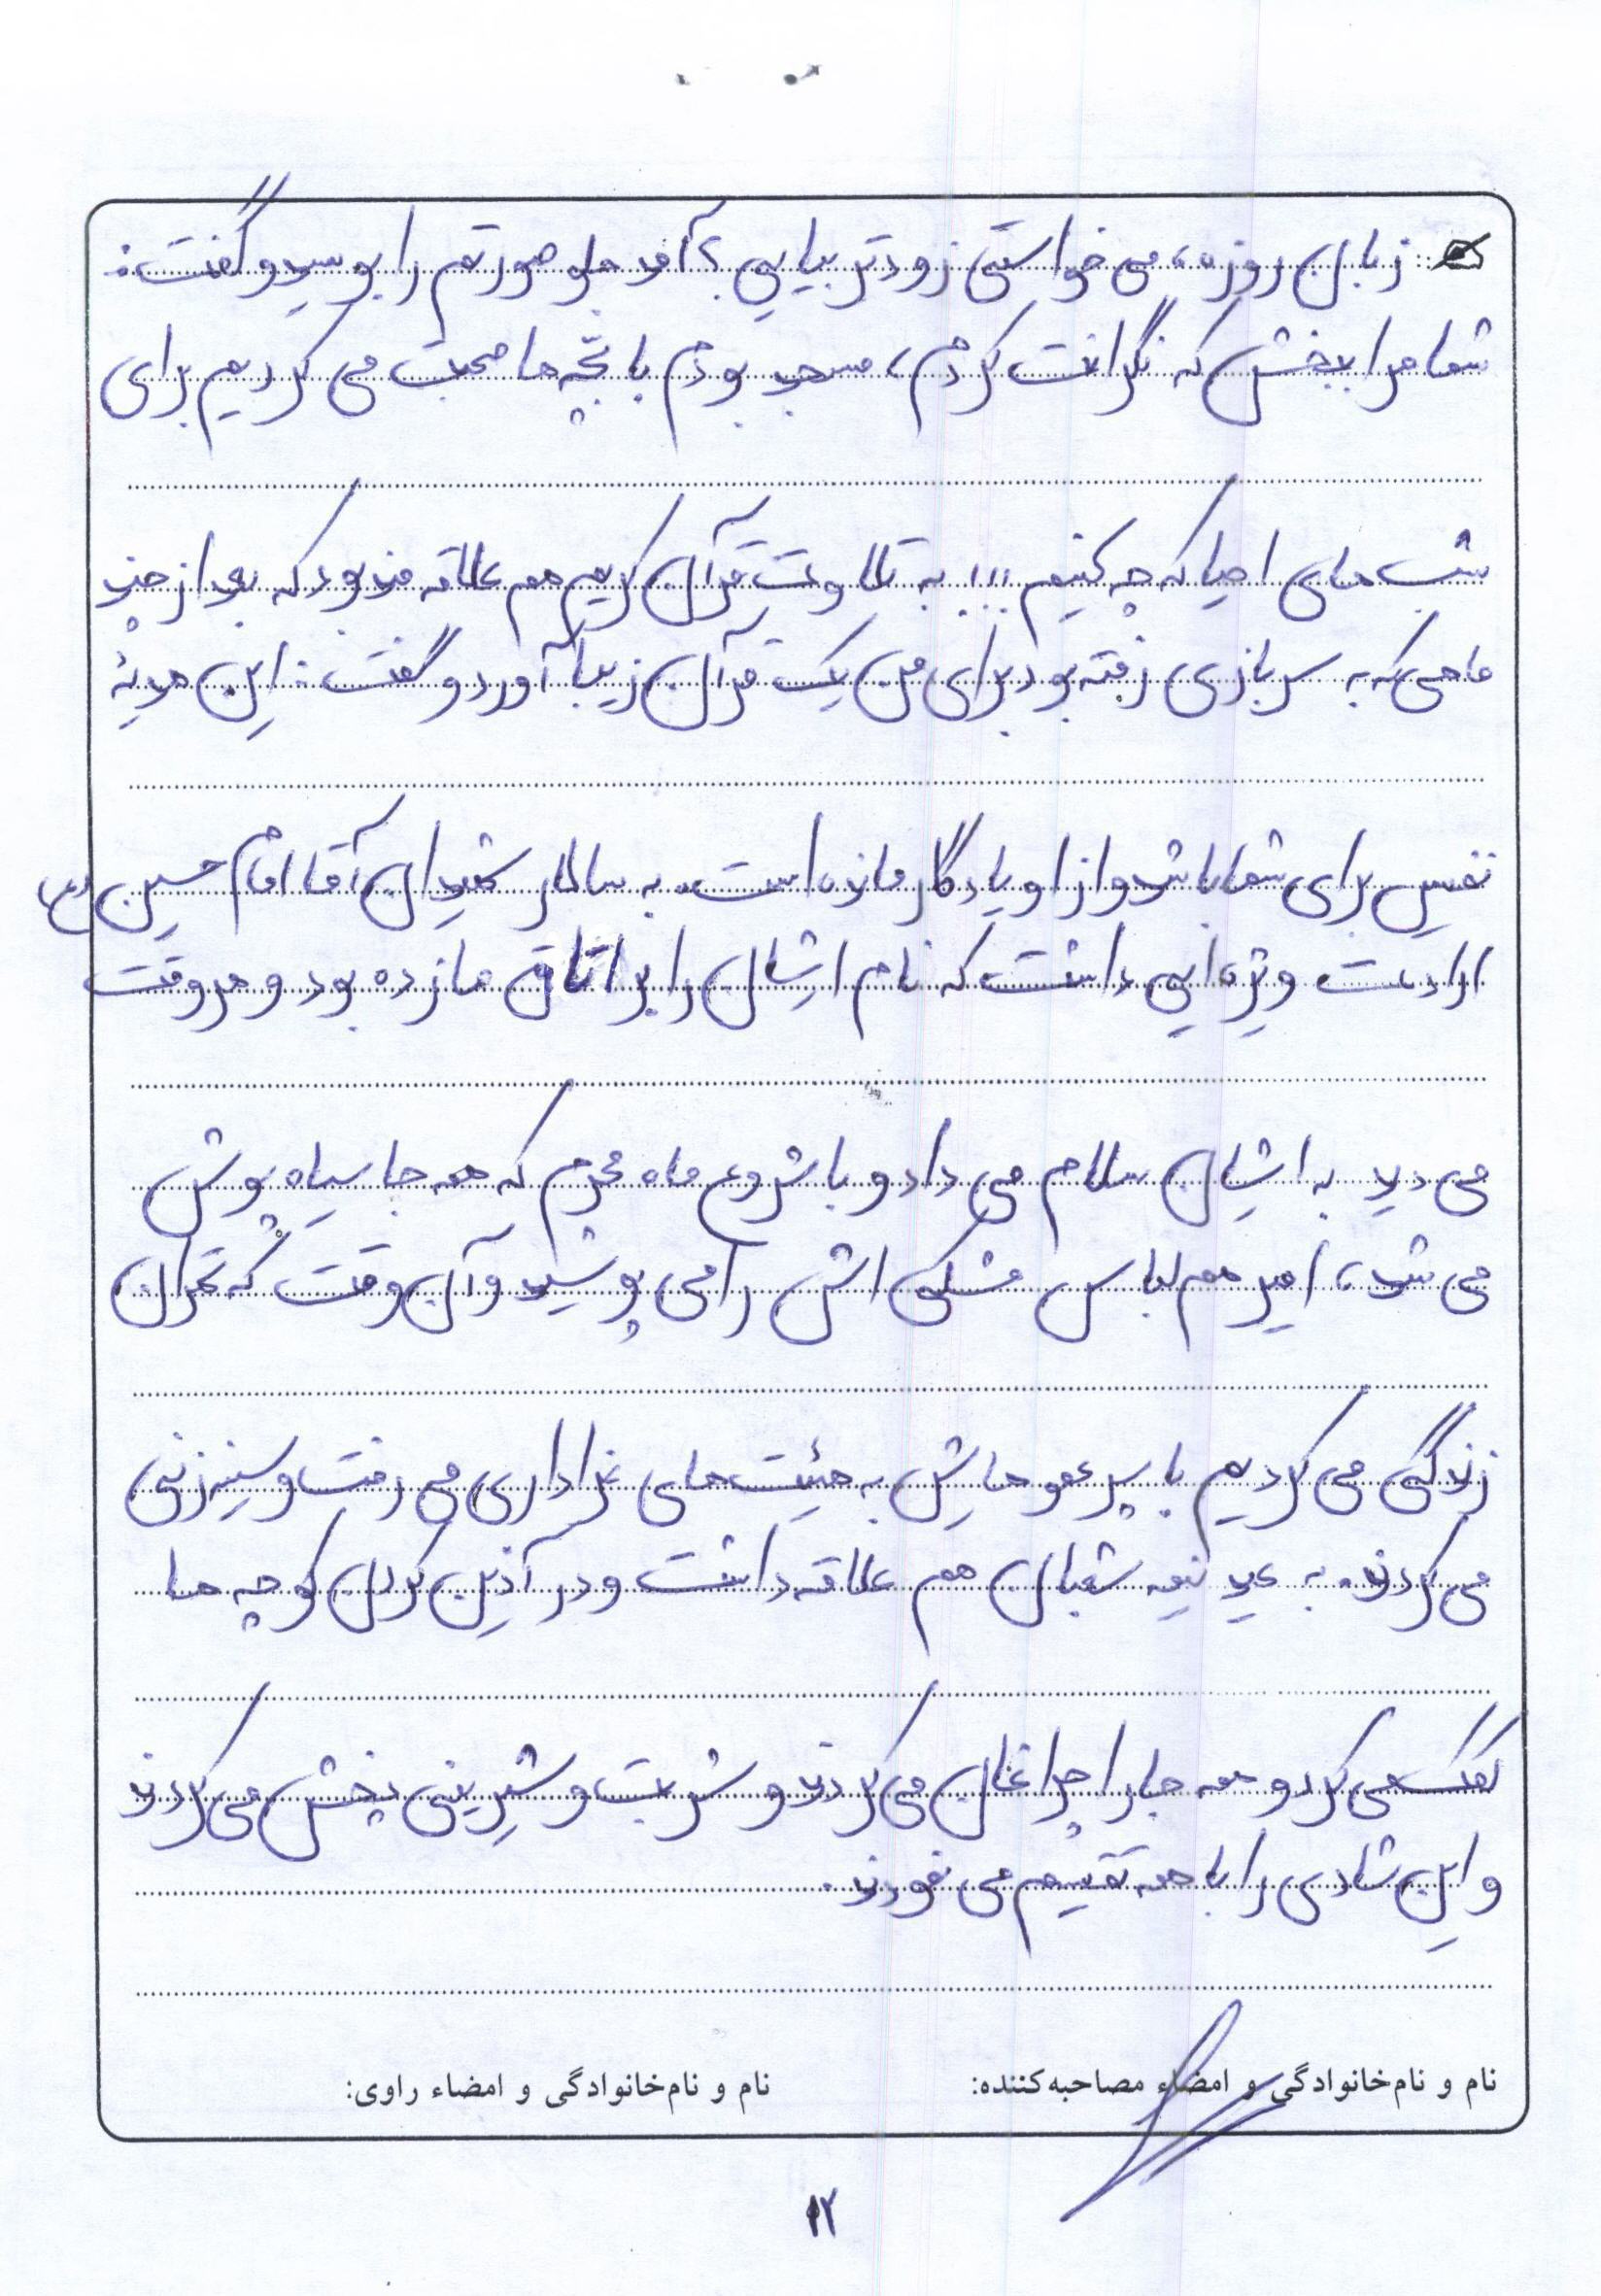 زبان روزه، می خواستی زودتر بیایی؟ آمد جلو صورتم را بوسید و گفت:
شما مرا ببخش که نگرانت کردم، مسجد بودم با بچّه ها صحبت می کردیم برای
شب های احیا که چه کنیم ... به تلاوت قرآن کریم هم علاقه مند بود که بعد از چند
ماهی که به سربازی رفته بود برای من یک قرآن زیبا آورد و گفت: این هدیۀ
نفیس برای شما باشد و از او یادگار مانده است. به سالار شهیدان آقا امام حسین (ع)
ارادت ویژه ایی داشت که نام ایشان را بر اتاق ما زده بود و هر وقت
می دید به ایشان سلام می داد و با شروع ماه محرم که همه جا سیاه پوش
می شد، امیر هم لباس مشکی اش را می پوشید و آن وقت که تهران
زندگی می کردیم با پسر عمو هایش به هیئت های عزاداری می رفت و سینه زنی
می کردند. به عید نیمه شعبان هم علاقه داشت و در آذین کردن کوچه ها
کمک می کرد و همه جا را چراغان می کردند و شربت و شیرینی پخش می کردند
و این شادی را با همه تقسیم می نمودند.
نام و نام‌خانوادگی و امضاء مصاحبه‌کننده:
نام و نام‌خانوادگی و امضاء راوی:
۱۲